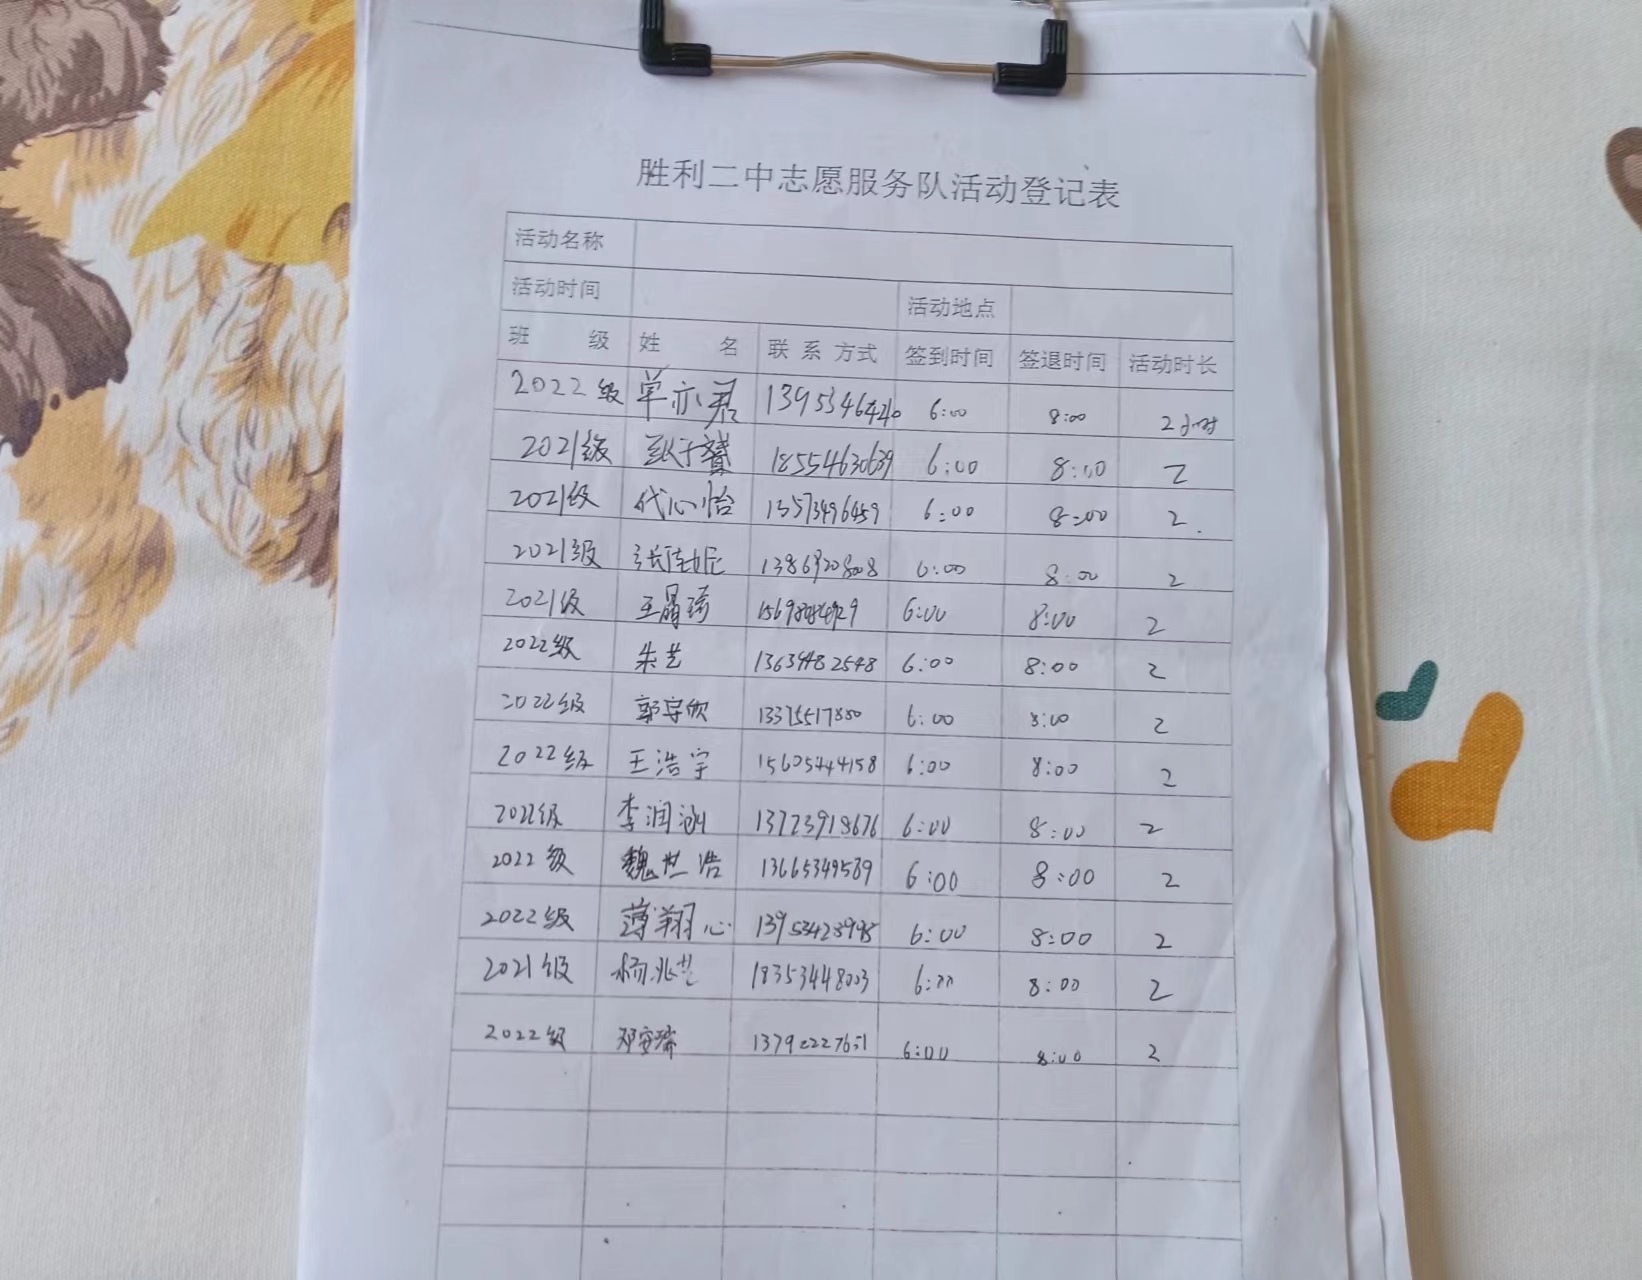 胜利二中志愿服务队活动登记表
活动名称
活动时间 活动地点
班 级 姓 名 联系方式 签到时间 签退时间 活动时长
2022级 单亦君 6:00 8:00 2小时
2021级 18554630639 6:00 8:00 2
2021级 代心怡 13573496459 6:00 8:00 2.
2021级 13869208008 6:00 8:00 2
2021级 6:00 8:00 2
2022级 朱艺 13634482548 6:00 8:00 2
2022级 郭宇欣 13375517880 6:00 8:00 2
2022级 王浩宇 15605444158 6:00 8:00 2
2022级 李润 13723918676 6:00 8:00 2
2022级 魏世浩 13665349589 6:00 8:00 2
2022级 薄翔心 6:00 8:00 2
2021级 杨兆艺 18353448003 6:00 8:00 2
2022级 邓安 13792227651 6:00 8:00 2